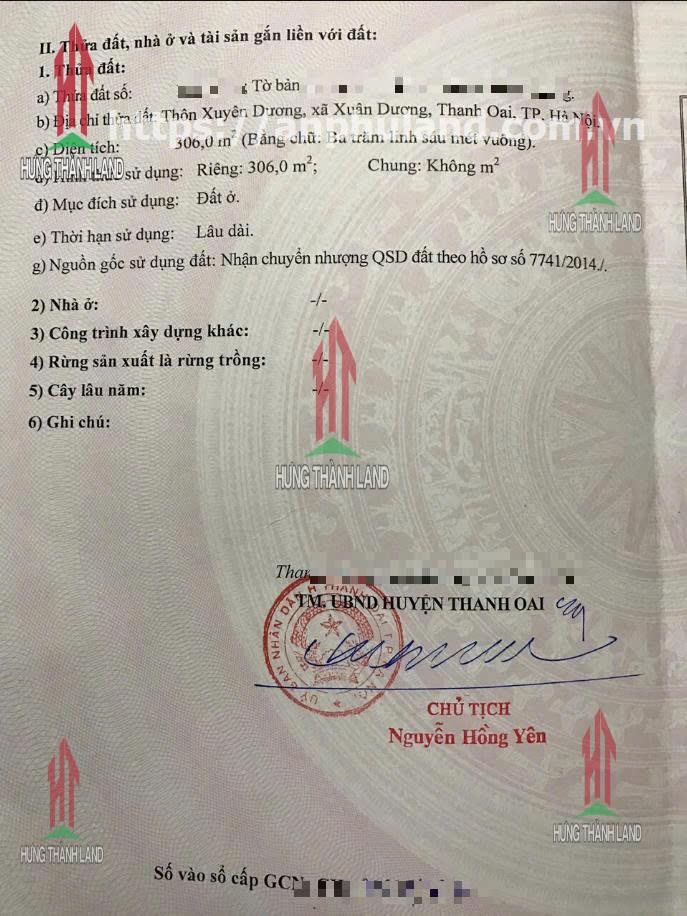 II. Thửa đất, nhà ở và tài sản gắn liền với đất:
1. Thửa đất:
a) Thửa đất số: Tờ bản
b) Địa chỉ thửa đất: Thôn Xuyên Dương, xã Xuân Dương, Thanh Oai, TP. Hà Nội.
c) Diện tích: 306,0 m² (Bằng chữ: Ba trăm linh sáu mét vuông).
HƯNG THÀNH LAND
sử dụng: Riêng: 306,0 m²; Chung: Không m²
đ) Mục đích sử dụng: Đất ở.
HƯNG THÀNH LAND
e) Thời hạn sử dụng: Lâu dài.
g) Nguồn gốc sử dụng đất: Nhận chuyển nhượng QSD đất theo hồ sơ số 7741/2014./.
2) Nhà ở: -/-
3) Công trình xây dựng khác: -/-
4) Rừng sản xuất là rừng trồng: -/-
5) Cây lâu năm: -/-
6) Ghi chú:
HƯNG THÀNH LAND
TM. UBND HUYỆN THANH OAI
CHỦ TỊCH
Nguyễn Hồng Yên
HƯNG THÀNH LAND
HƯNG THÀNH LAND
Số vào sổ cấp GCN